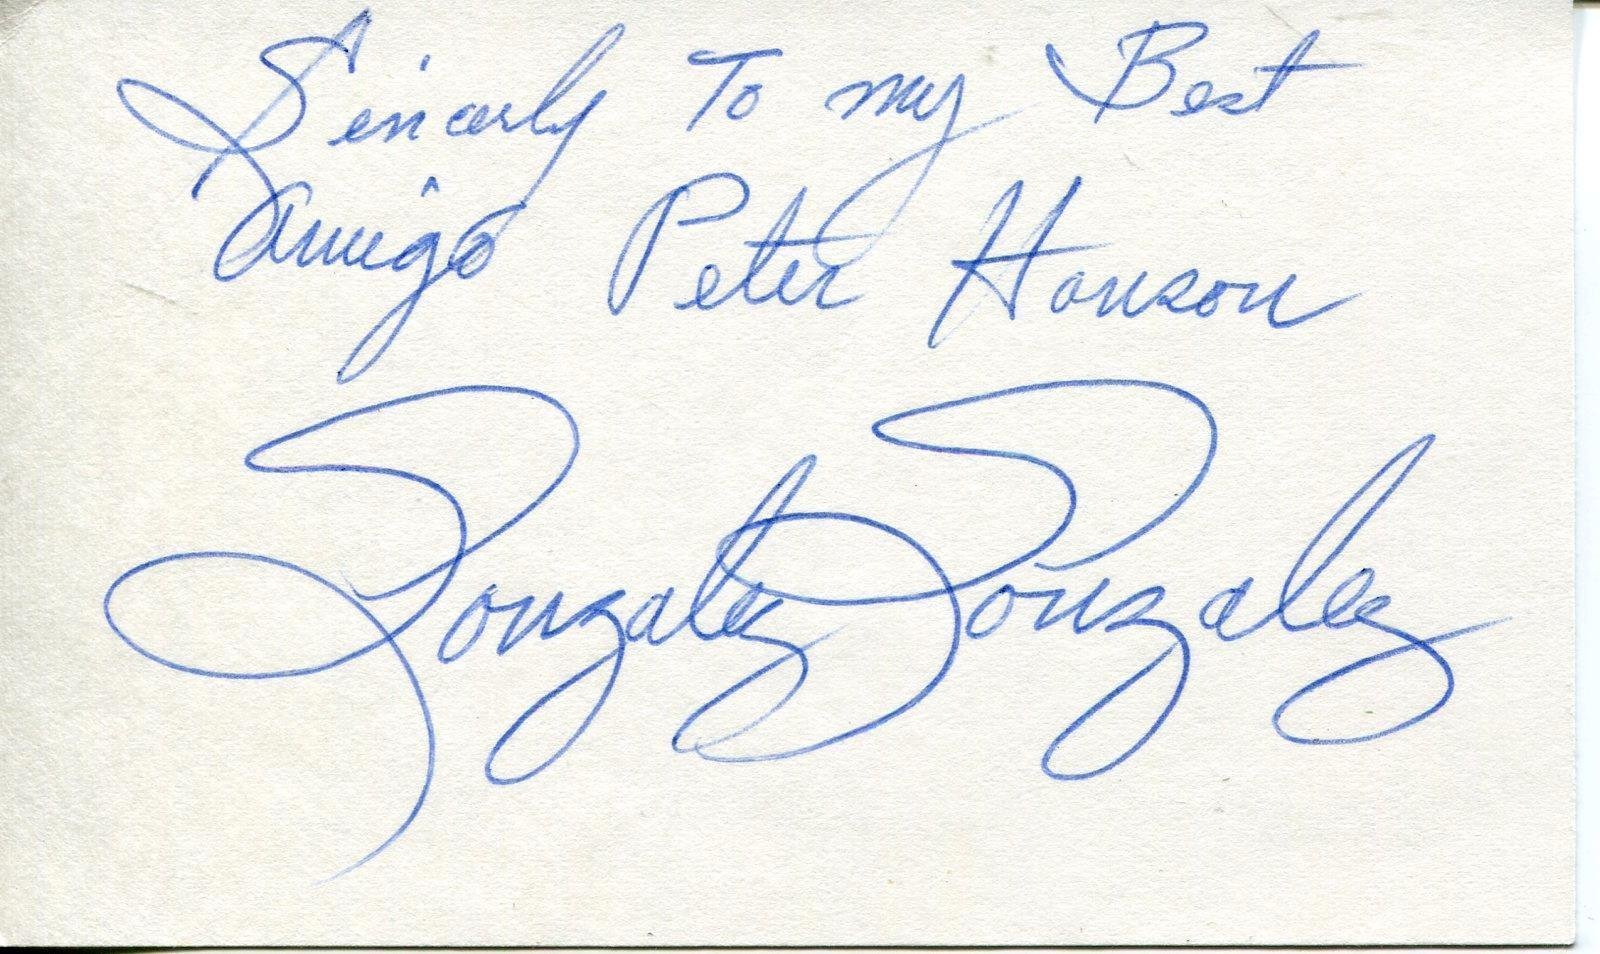 Sincerly To my Best
Amigo Peter Hanson
Gonzalez Gonzalez